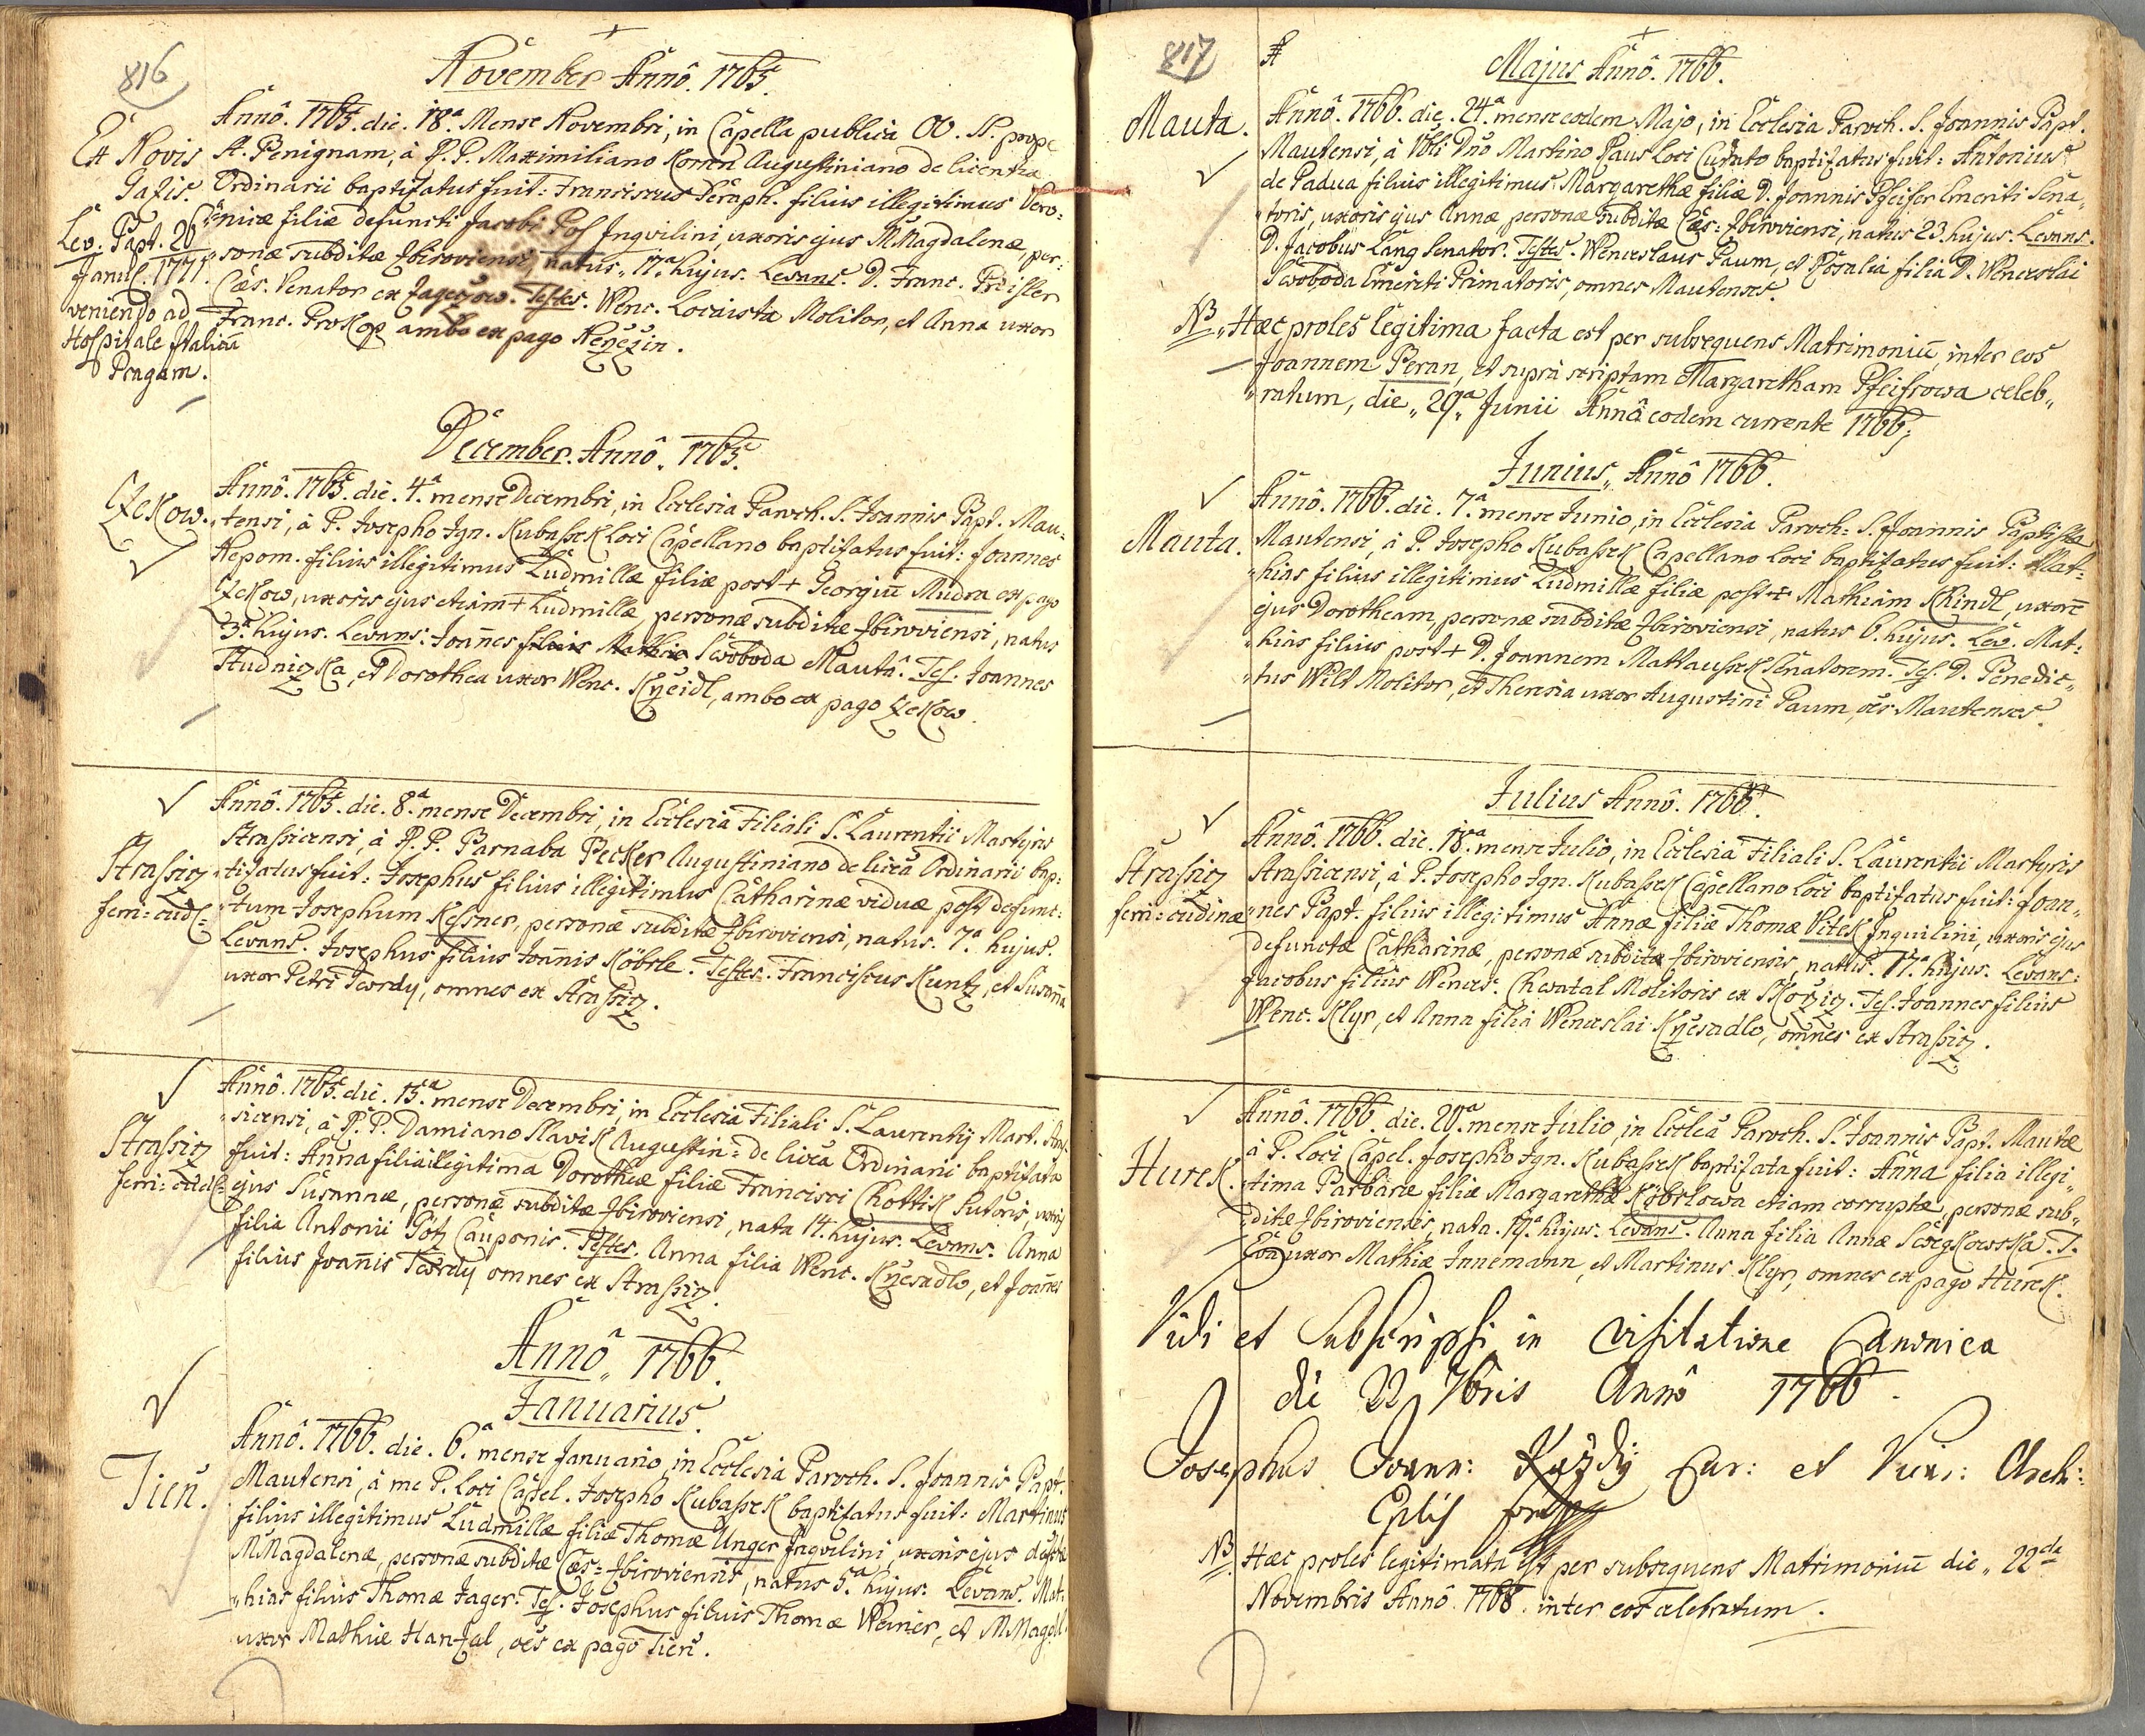 816
November Annô. 1765.
Ex Novis
Gasis.
Lev. Bapt. 26
Janu͡. 1771.
veniendo ad
Hospitale Italicū
Pragam.
Annô. 1765. die. 18.a Mense Novembri, in Capella publica OO. SS. prope
S. Benignam, à R. P. Maximiliano Koren Augustiniano de licentia
Ordinarii baptisatus fuit: Franciscus Seraph. filius illegitimus Vero-
nicæ filiæ defuncti Jacobi Pos Inqvilini, uxoris ejus M Magdalenæ, per-
sonæ subditæ Zbiroviensi, natus 17.a hujus. Levans. D. Franc. Preisler
Cæs. Venator ex Jageczow. Testes. Wenc. Locaista Molitor, et Anna uxor
Franc. Prokop ambo ex pago Neņeżin.
December. Annô. 1765.
Czekow.
Annô. 1765. die. 4.a mense Decembri, in Ecclesia Paroch. S. Joannis Bapt. Mau-
tensi, à P. Josepho Ign. Kubassek Loci Capellano baptisatus fuit: Joannes
Nepom. filius illegitimus Ludmillæ filiæ post + Georgiū Mudra ex pago
Czekow, uxoris ejus etiam + Ludmillæ, personæ subditæ Zbiroviensi, natus
3.a hujus. Levans: Joañes filius Mathiæ Swoboda Mautâ. Tes. Joannes
Studniczka, et Dorothea uxor Wenc. Kņeidl, ambo ex pago Czekow.
Strassicz
semi-oudl-
Annô. 1765. die. 8.a mense Decembri, in Ecclesia Filiali S. Laurentii Martyris
Strassicensi, à R. P. Barnaba Pecker Augustiniano de licēa Ordinarii bap-
tisatus fuit: Josephus filius illegitimus Catharinæ viduæ post defunc-
tum Josephum Kessner, personæ subditæ Zbiroviensi, natus. 7.a hujus.
Levans. Josephus filius Joañis Köbrle. Testes. Franciscus Kuntz, et Susaña
uxor Petri Twrdy, omnes ex Strassicz.
Strassicz
semi-oudl-
Annô. 1765. die. 15.a mense Decembri, in Ecclesia Filiali S. Laurentij Mart. Stras-
sicensi, à R. P. Damiano Slavik Augustin: de licēa Ordinarii baptisata
fuit: Anna filia illegitima Dorotheæ filiæ Francisci Chottik Sutoris, uxoris
ejus Susannæ, personæ subditæ Zbiroviensi, nata 14. hujus. Levans. Anna
filia Antonii Götz Cauponis. Testes. Anna filia Wenc. Kņesadlo, et Joañes
filius Joañis Twrdy omnes ex Strassicz.
Annô. 1766.
Januarius.
Tien.
Annô. 1766. die. 6.a mense Januario, in Ecclesia Paroch. S. Joannis Bapt.
Mautensi, à me P. Loci Capel. Josepho Kubassek baptisatus fuit: Martinus
filius illegitimus Ludmillæ filiæ Thomæ Unger Inqvilini, uxoris ejus defctæ
M Magdalenæ, personæ subditæ Cæs: Zbiroviensis, natus 5.a hujus: Levans. Mat-
hias filius Thomæ Jager. Tes. Josephus filius Thomæ Weiner, et M Magdl.
uxor Mathiæ Hanzal, oēs ex pago Tien.
817
Majus Annô. 1766.
Mauta.
Annô. 1766. die. 24.a mense eodem Majo, in Ecclesia Paroch. S. Joannis Bapt.
Mautensi, à Vbli Dnō Martino Paus Loci Curato baptisatus fuit: Antonius
de Padua filius illegitimus Margarethæ filiæ D. Joannis Pfeifer Emeriti Sena-
toris, uxoris ejus Annæ personæ subditæ Cæs: Zbiroviensi, natus 23. hujus. Levans.
D. Jacobus Lang Senator. Testes. Wenceslaus Baum, et Rosalia filia D. Wenceslai
Swoboda Emeriti Primatoris, omnes Mautenses.
NB. Hæc proles legitima facta est per subsequens Matrimoniū, inter eos
Joannem Beran, et supra scriptam Margaretham Pfeifrowa celeb-
ratum, die 29.a Junii Annô eodem currente 1766;
Junius, Annô 1766.
Mauta.
Annô. 1766. die. 7.a mense Junio, in Ecclesia Paroch. S. Joannis Baptistæ
Mautensi, à P. Josepho Kubassek Capellano Loci baptisatus fuit: Mat-
hias filius illegitimus Ludmillæ filiæ post + Mathiam Schindl, uxorē
ejus Dorotheam, personæ subditæ Zbiroviensi, natus 6. hujus. Lev. Mat-
hias filius post + D. Joannem Mattaussek Senatorem. Tes. D. Benedic-
tus Wild Molitor, et Theresia uxor Augustini Baum, oēs Mautenses.
Julius Annô. 1766.
Strassicz
semi-oudinæ
Annô. 1766. die. 18.a mense Julio, in Ecclesia Filiali S. Laurentii Martyris
Strassicensi, à P. Josepho Ign. Kubassek Capellano Loci baptisatus fuit: Joan-
nes Bapt. filius illegitimus Annæ filiæ Thomæ Vitek Inquilini, uxoris ejus
defunctæ Catharinæ, personæ subditæ Zbiroviensis, natus. 17.a hujus. Levans:
Jacobus filius Wences. Chwatal Molitoris ex Skoržicz. Tes. Joannes filius
Wenc. Klyr, et Anna filia Wenceslai Kņesadlo, omnes ex Strassicz.
Hurek.
Annô. 1766. die. 20.a mense Julio, in Ecclēa Paroch. S. Joannis Bapt. Mautæ
à P. Loci Capel. Josepho Ign. Kubassek baptisata fuit: Anna filia illegi-
tima Barbaræ filiæ Margarethæ Köbrlowa etiam corruptæ, personæ sub-
ditæ Zbiroviensis, nata. 19.a hujus. Levans. Anna filia Annæ Swegkowska. T.
Eva uxor Mathiæ Innemann, et Martinus Klyr, omnes ex pago Hurek.
Vidi et Subscripsi in visitatione Canonica
die 22 7bris Annô 1766.
Josephus Joann: Każdy Cur: et Vicar: Arch:
NB. Hæc proles legitimata est per subsequens Matrimoniū die 22da
Novembris Annô 1768. inter eos celebratum.